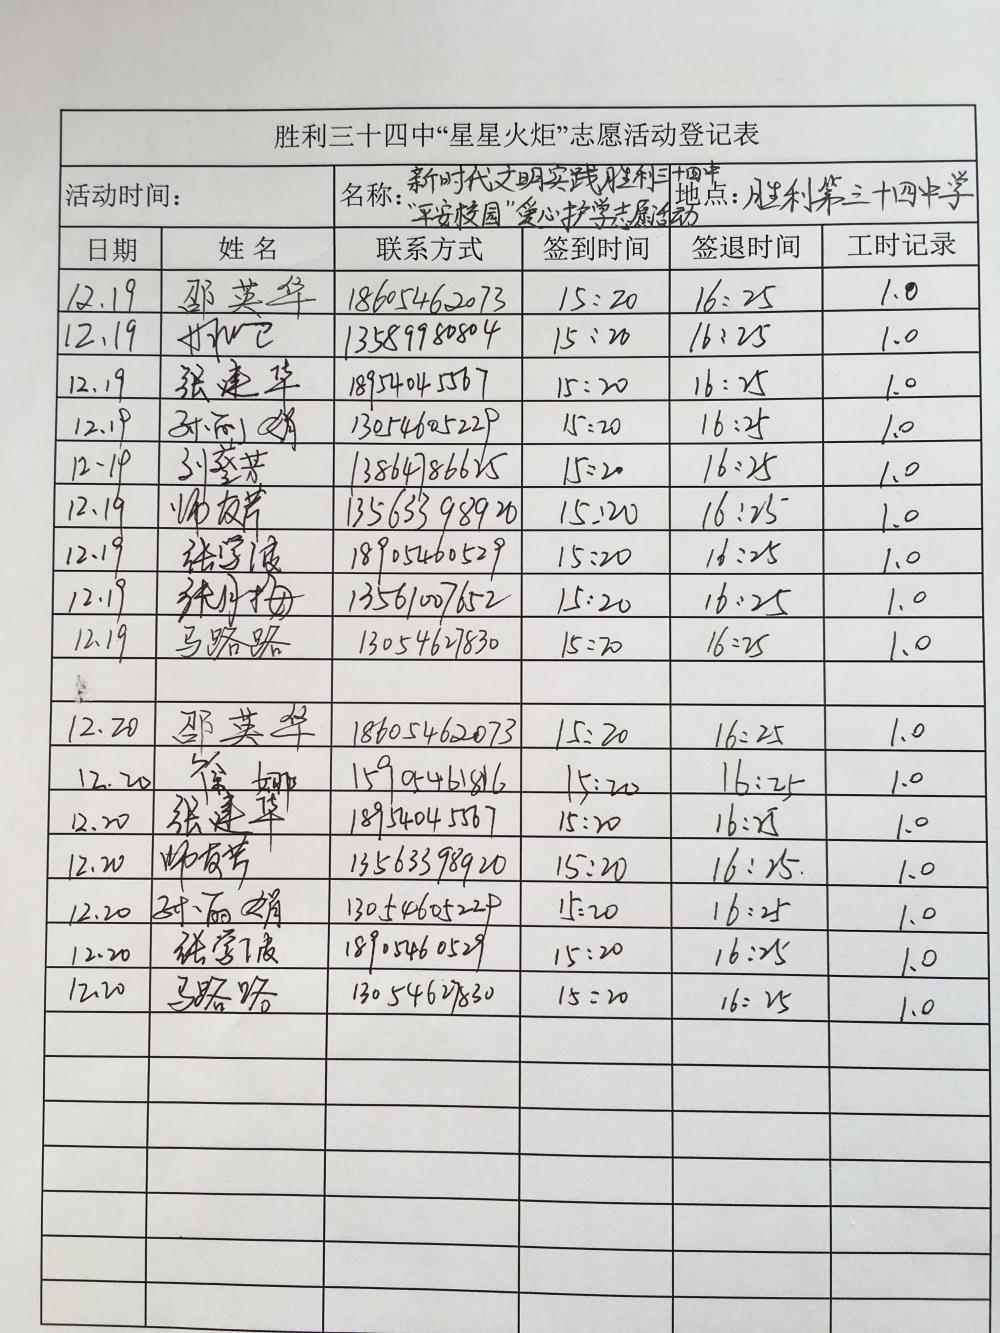 胜利三十四中“星星火炬”志愿活动登记表
活动时间： 名称：新时代文明实践胜利三十四中 地点：胜利第三十四中学
“平安校园”爱心护学志愿活动
日期 姓名 联系方式 签到时间 签退时间 工时记录
12.19 邵英华 18605462073 15:20 16:25 1.0
12.19 13589980804 15:20 16:25 1.0
12.19 张建华 18954045567 15:20 16:25 1.0
12.19 孙丽娟 13054605229 15:20 16:25 1.0
12-19 刘芳 13864786625 15:20 16:25 1.0
12.19 师友芹 13563398920 15:20 16:25 1.0
12.19 张学波 18905460529 15:20 16:25 1.0
12.19 张月梅 13561007652 15:20 16:25 1.0
12.19 马路路 13054627830 15:20 16:25 1.0
12.20 邵英华 18605462073 15:20 16:25 1.0
12.20 徐娜 15905461816 15:20 16:25 1.0
12.20 张建华 18954045567 15:20 16:25 1.0
12.20 师友芹 13563398920 15:20 16:25. 1.0
12.20 孙丽娟 13054605229 15:20 16:25 1.0
12.20 张学波 18905460529 15:20 16:25 1.0
12.20 马路路 13054627830 15:20 16:25 1.0